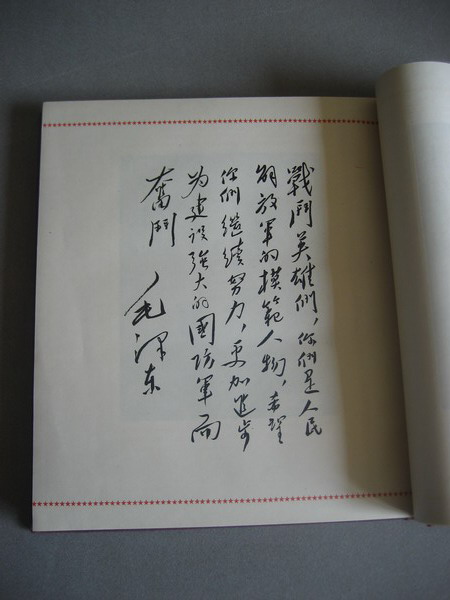 戰鬥英雄們，你們是人民
解放軍的模範人物，希望
你們繼續努力，更加進步
为建设強大的國防軍而
奮鬥
毛泽东